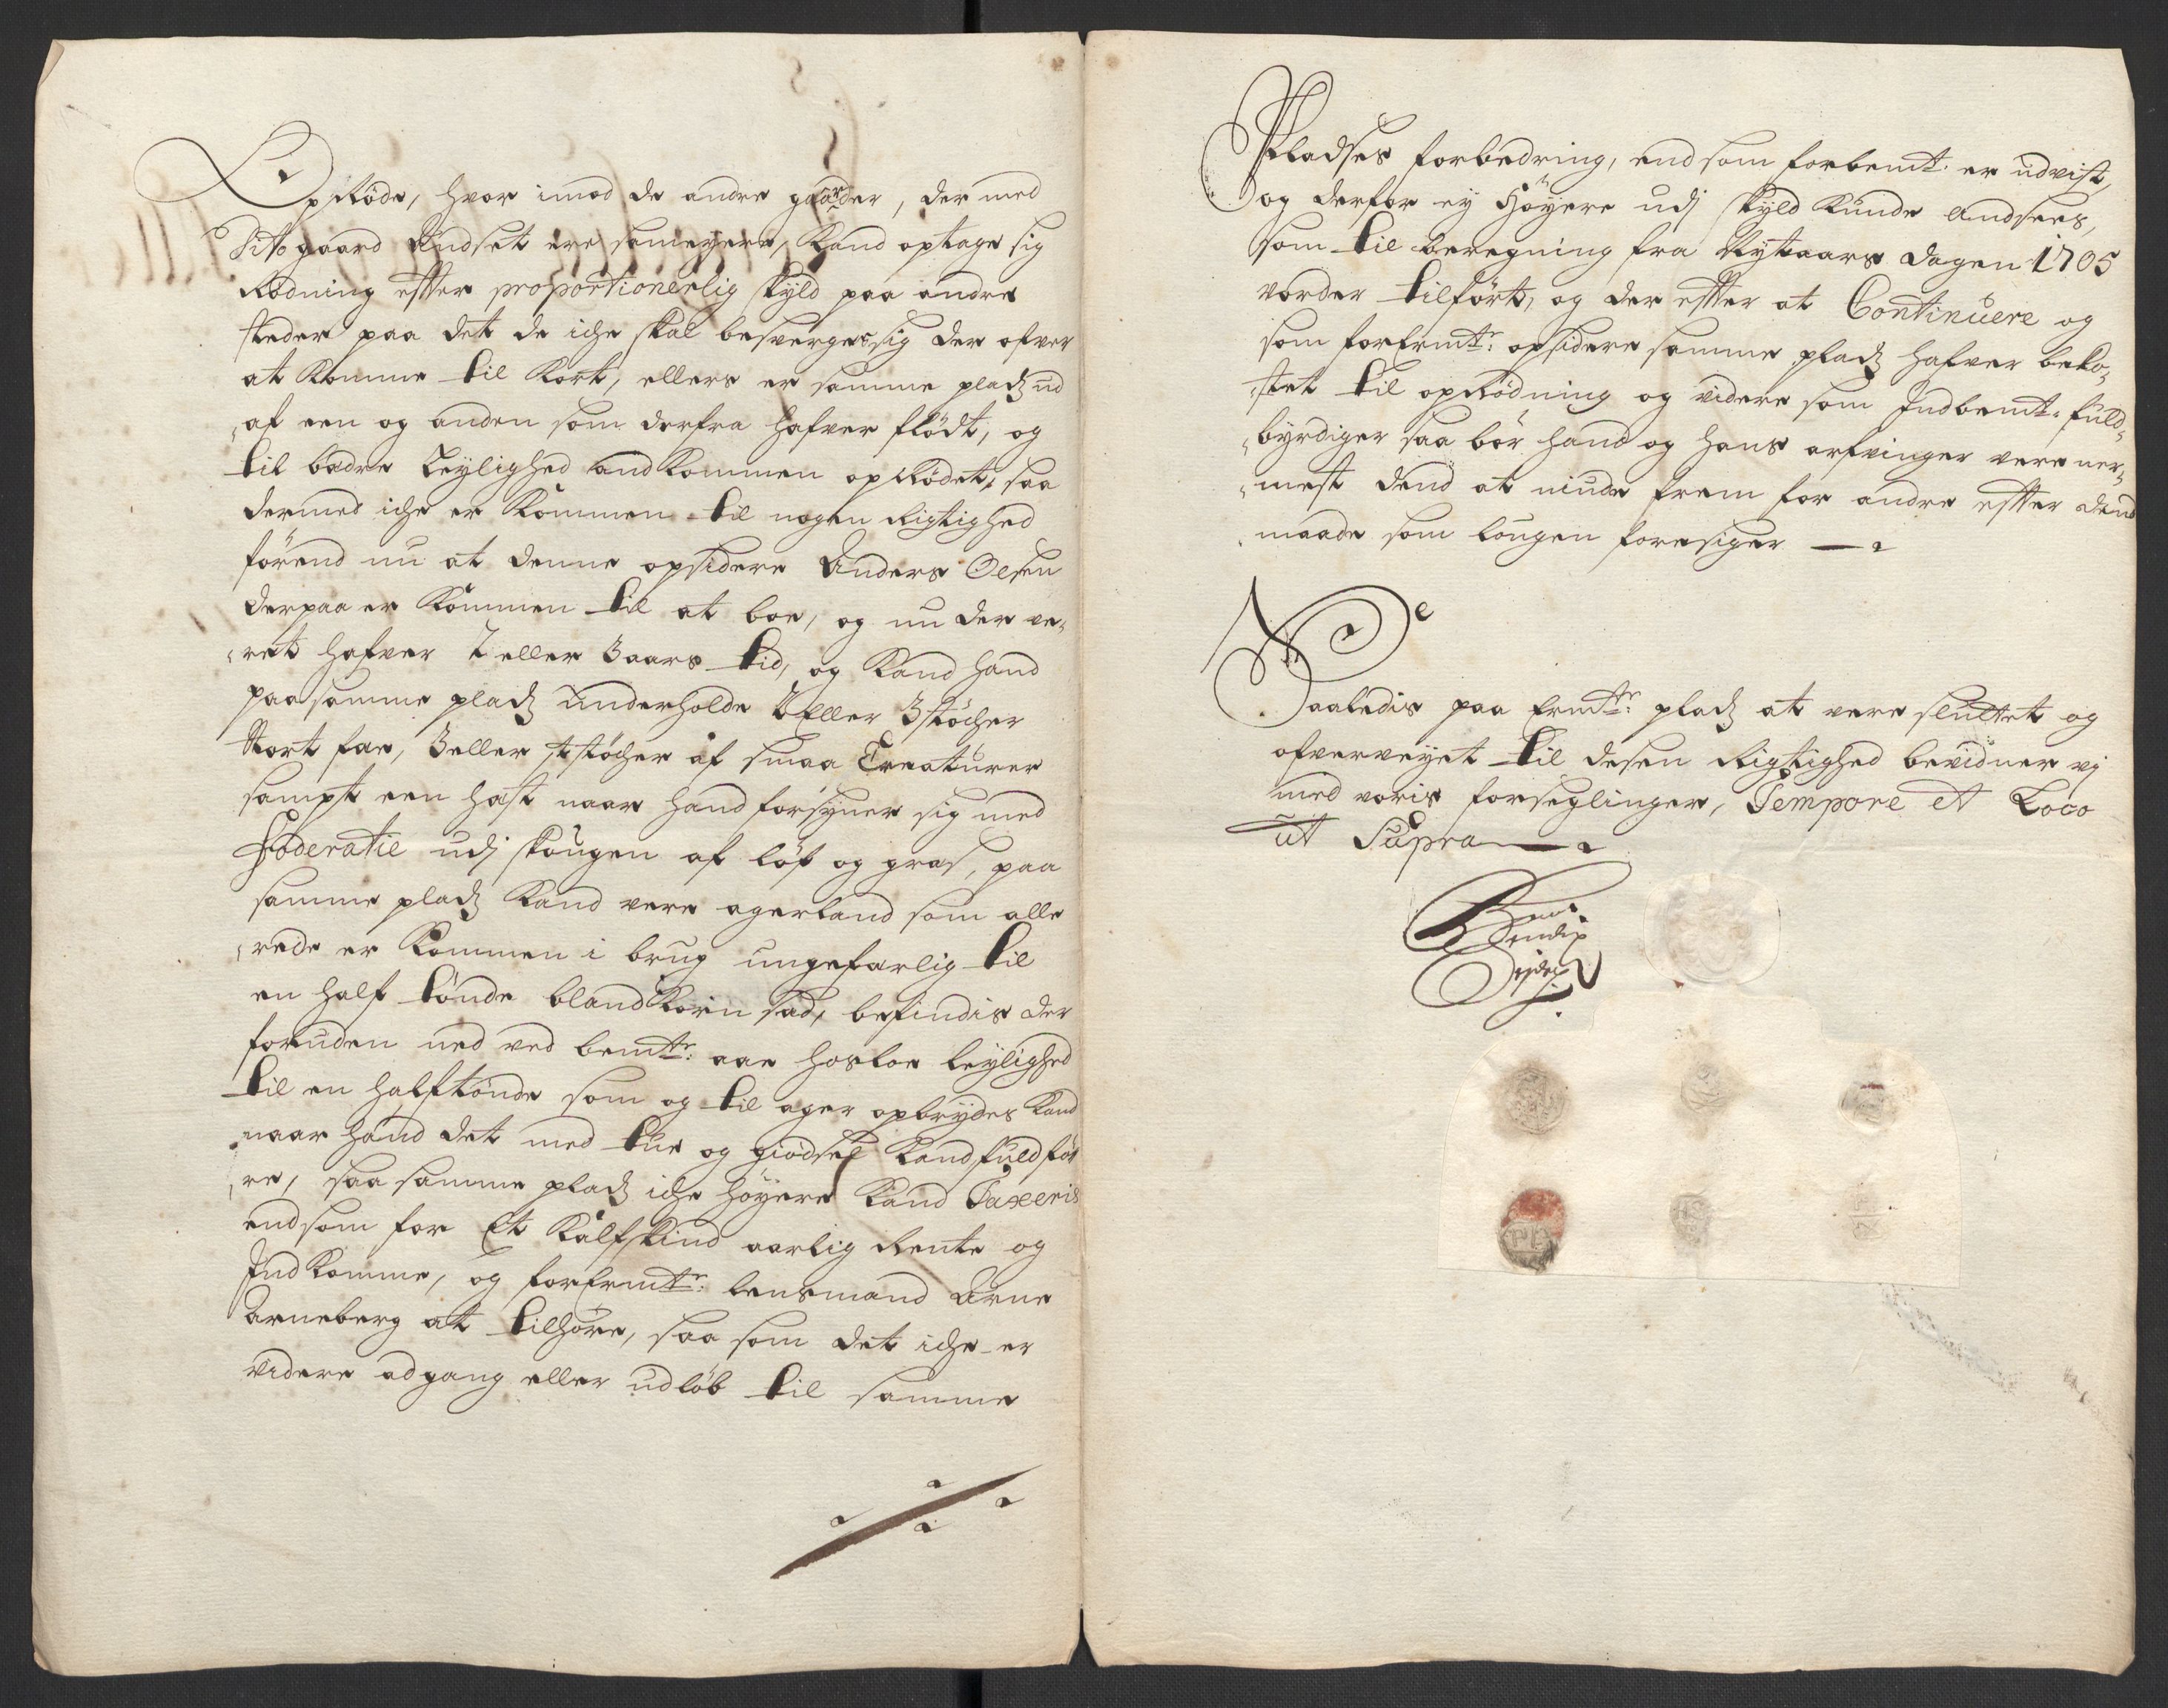 OpRöde, hvor imod de andre gaarder, der med
gaard Andset ere sameyere, Kand optage sig
Rödning effter proportionerlig skyld paa andre
steder paa det de iche skal besverge sig der ofver
at Komme til Kort, ellers er samme pladz ud
af een og anden som derfra hafver flödt, og
til bædre Leylighed andkommen opRödet, saa
dermed iche er Kommen til nogen Rigtighed
förend nu at denne opsidere Anders Olsen
derpaa er Kommen til at boe, og nu der ve„
„ret hafver 2 eller 3 aars tid, og Kand hand
paa samme pladz underholde 2 eller 3 støcher
Stort fæe, 3 eller 4 støcher af smaa Creaturer
sampt een hæst naar hand forsyner sig med
Foderatie udj skougen af löf og græs, paa
samme pladz Kand vere agerland som alle
„rede er Kommen i brug ungefærlig til
en half tönde blandKorn sæd, befindis der
foruden ned ved bemte: aae hosloe leylighed
til en half tönde som og til ager opbrydes Kand
naar hand det med tiie og giödsel Kand fuldfö„
„re, saa samme pladz iche höyere Kand Taxeris
end som for Et Kalfskind aarlig Rente og
Jndkomme, og forermte: lensmand Arne
Arneberg at tilhöre, saa som det iche er
videre adgang eller udlöb til samme
Pladses forbedring, end som forbemt: er udvist,
og derfor ey Höyere udj skyld Kunde Andsees,
som til beregning fra Nytaars dagen 1705
vorder tilfört, og der effter at Continuere og
som forermte: opsidere samme pladz hafver beko„
„stet til opRödning og videre som Jndbemt: fuld„
„byrdiger saa bör hand og hans arfvinger vere ner„
„mest dend at niude frem for andre effter dend
maade som lougen foresiger
Saaledis paa ermte: pladz at vere sluttet og
ofverveyet til desen Rigtighed bevidner vj
med voris forseglinger, Tempore et Loco
ut Supra